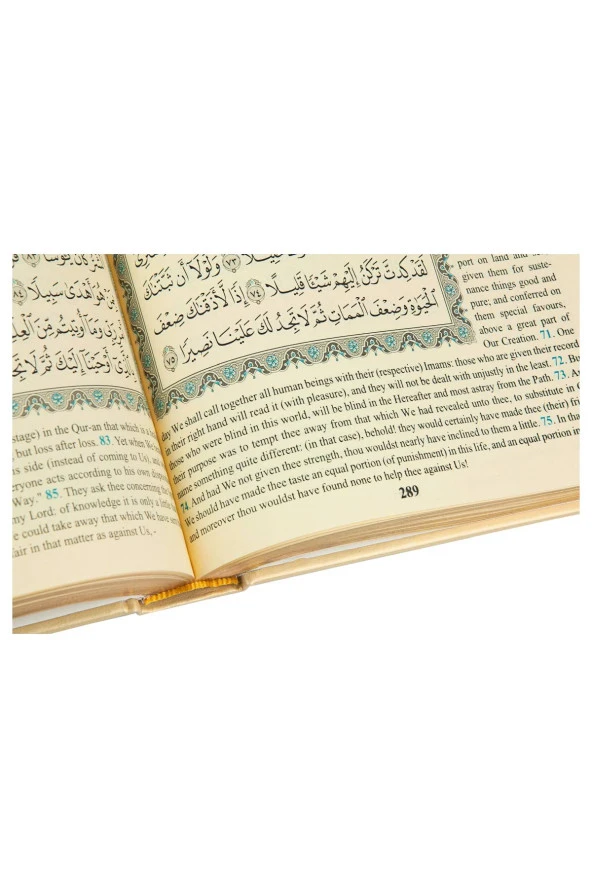 خَلِيلًا ٧٣ وَلَوْلَا أَن ثَبَّتْنَٰكَ
لَقَدْ كِدتَّ تَرْكَنُ إِلَيْهِمْ شَيْـًٔا قَلِيلًا ٧٤ إِذًا لَّأَذَقْنَٰكَ ضِعْفَ
ٱلْحَيَوٰةِ وَضِعْفَ ٱلْمَمَاتِ ثُمَّ لَا تَجِدُ لَكَ عَلَيْنَا نَصِيرًا ٧٥
port on land and
given them for suste-
nance things good and
pure; and conferred on
them special favours,
above a great part of
Our Creation. 71. One
day We shall call together all human beings with their (respective) Imams: those who are given their record
in their right hand will read it (with pleasure), and they will not be dealt with unjustly in the least. 72. Bu
those who were blind in this world, will be blind in the Hereafter and most astray from the Path. 73. A
their purpose was to tempt thee away from that which We had revealed unto thee, to substitute in
name something quite different: (in that case), behold! they would certainly have made thee (their) fri
74. And had We not given thee strength, thou wouldst nearly have inclined to them a little. 75. In tha
We should have made thee taste an equal portion (of punishment) in this life, and an equal portion in
and moreover thou wouldst have found none to help thee against Us!
289
هُوَ أَهْدَىٰ سَبِيلًا ٨٤
رَبِّى وَمَآ أُوتِيتُم مِّنَ ٱلْعِلْ
أَوْحَيْنَآ إِلَيْكَ ثُمَّ لَا
stage) in the Qur-an that which is a
but loss after loss. 83. Yet when We
is side (instead of coming to Us), and
eryone acts according to his own dis
Way." 85. They ask thee concerning the
my Lord: of knowledge it is only a little
e could take away that which We have
fair in that matter as against Us, -